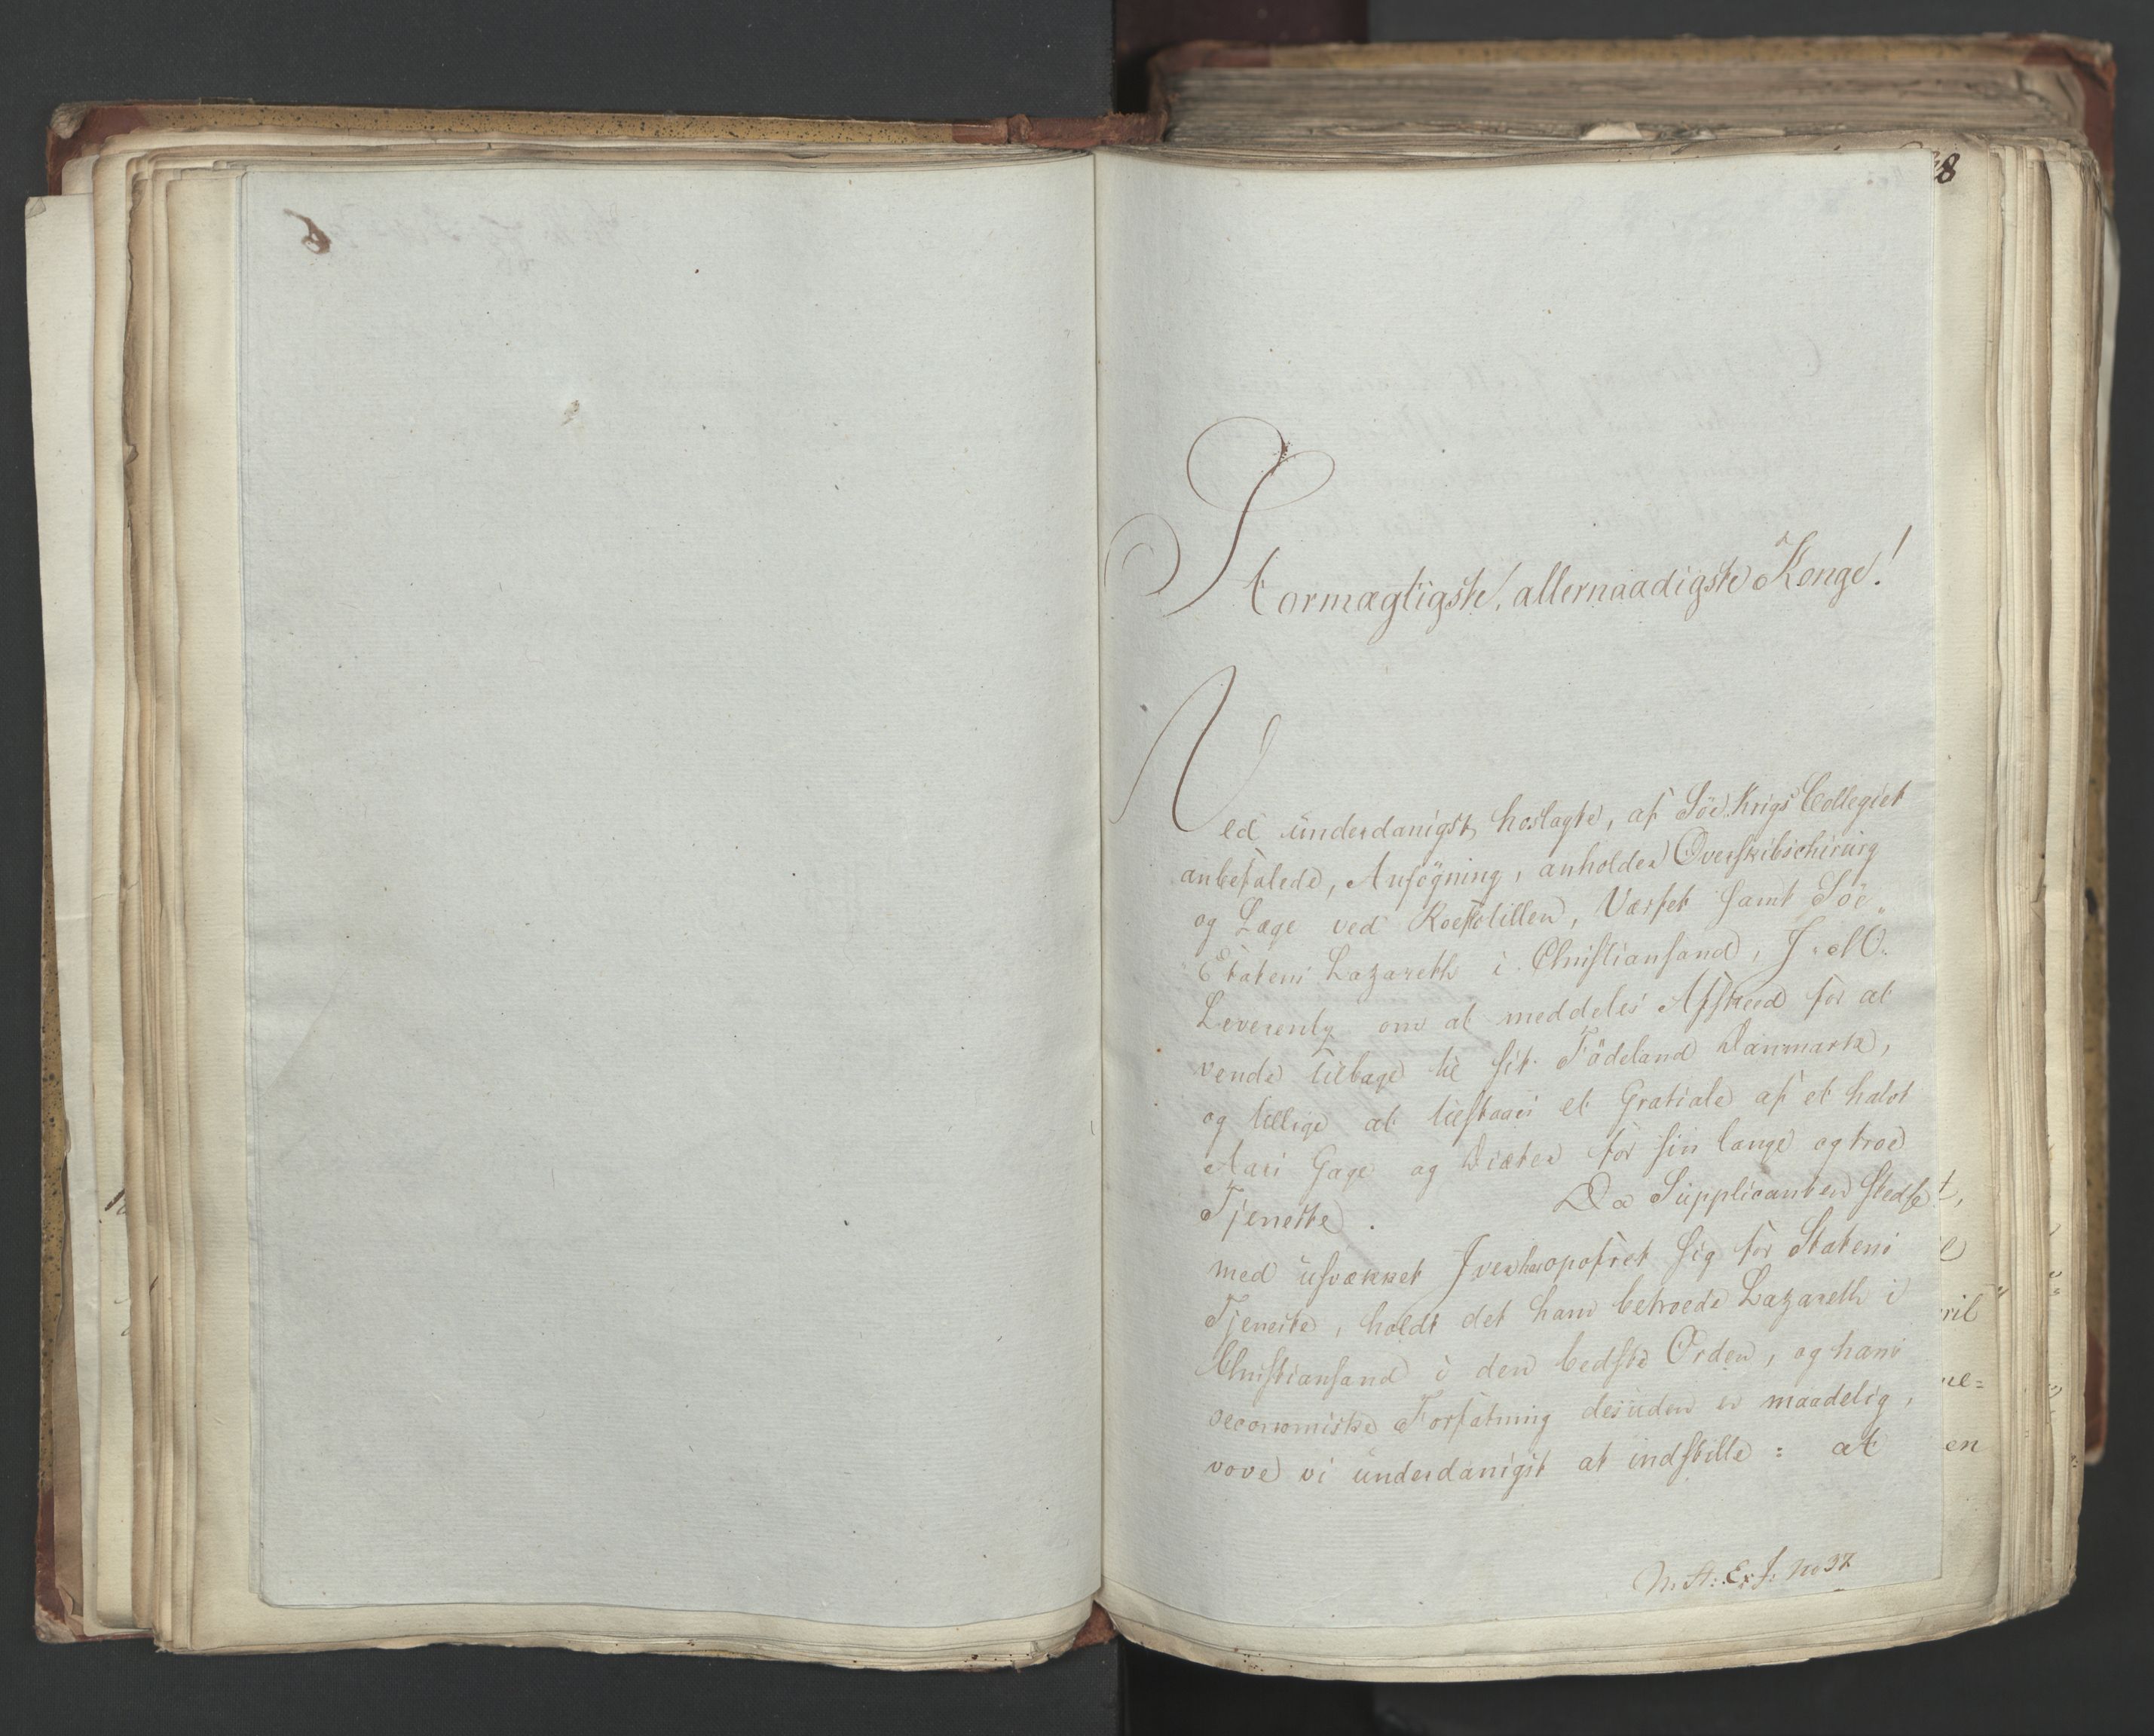 Stormægtigste, allernaadigste Konge!
Ved underdanigst hoslagte, af Söe Krigs Collegiet
anbefalede, Ansögning, anholder Overskibschirurg
og Læge ved Roeflotillen, Værfet samt Söe„
Etatens Lazareth i Christiansand, J: N:
Leverentz om at meddeles Afskeed for at
vende tilbage til sit Födeland Danmark,
og tillige at tilstaaes et Gratiale af et halvt
Aars Gage og Diæter for sin lange og troe
Tjeneste. Da Supplicanten stedse
med usvækket Iver har opofret sig for Statens
Tjeneste, holdt det ham betroede Lazareth i
Christiansand i den bedste Orden, og hans
oeconomiske Forfatning desuden er maadelig,
vove vi underdanigst at indstille: at
N. A: Ex. J: No 37